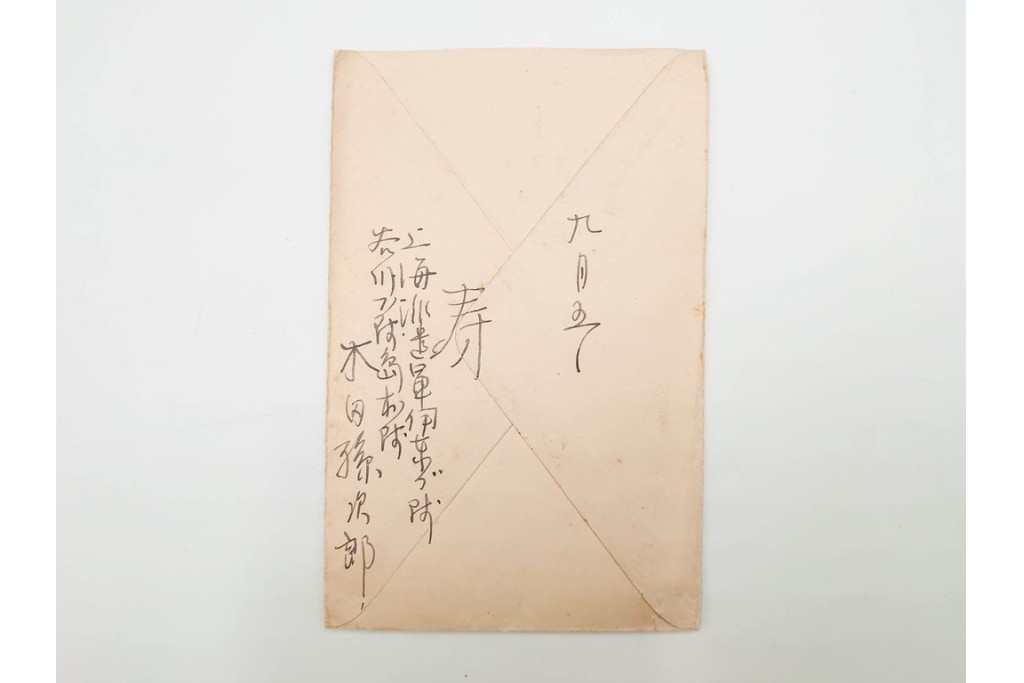 九月五日
寿
上海派遣軍伊東ブ隊
谷川ブ隊島村隊
木田孫次郎